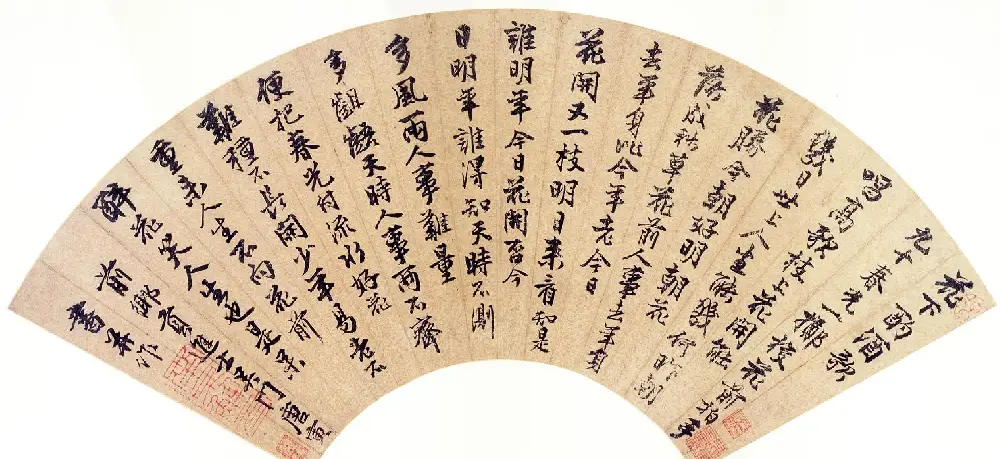 花下酌酒歌
九十春光一擲梭花前酌
唱高歌枝上花開能
幾日世上人生能幾何昨朝
花勝今朝好明朝花
落成秋草花前人事去年身
去年身比今年老今日
花開又一枝明日來看知是
誰明年今日花開否今
日明年誰得知天時不測
多風雨人事難量
多齟齬天時人事兩不齊
便把春光付流水好花
難種不長開少年易老不
重來人生不向花前
醉花笑人生也是呆
前鄉貢進士吳門唐寅
書作